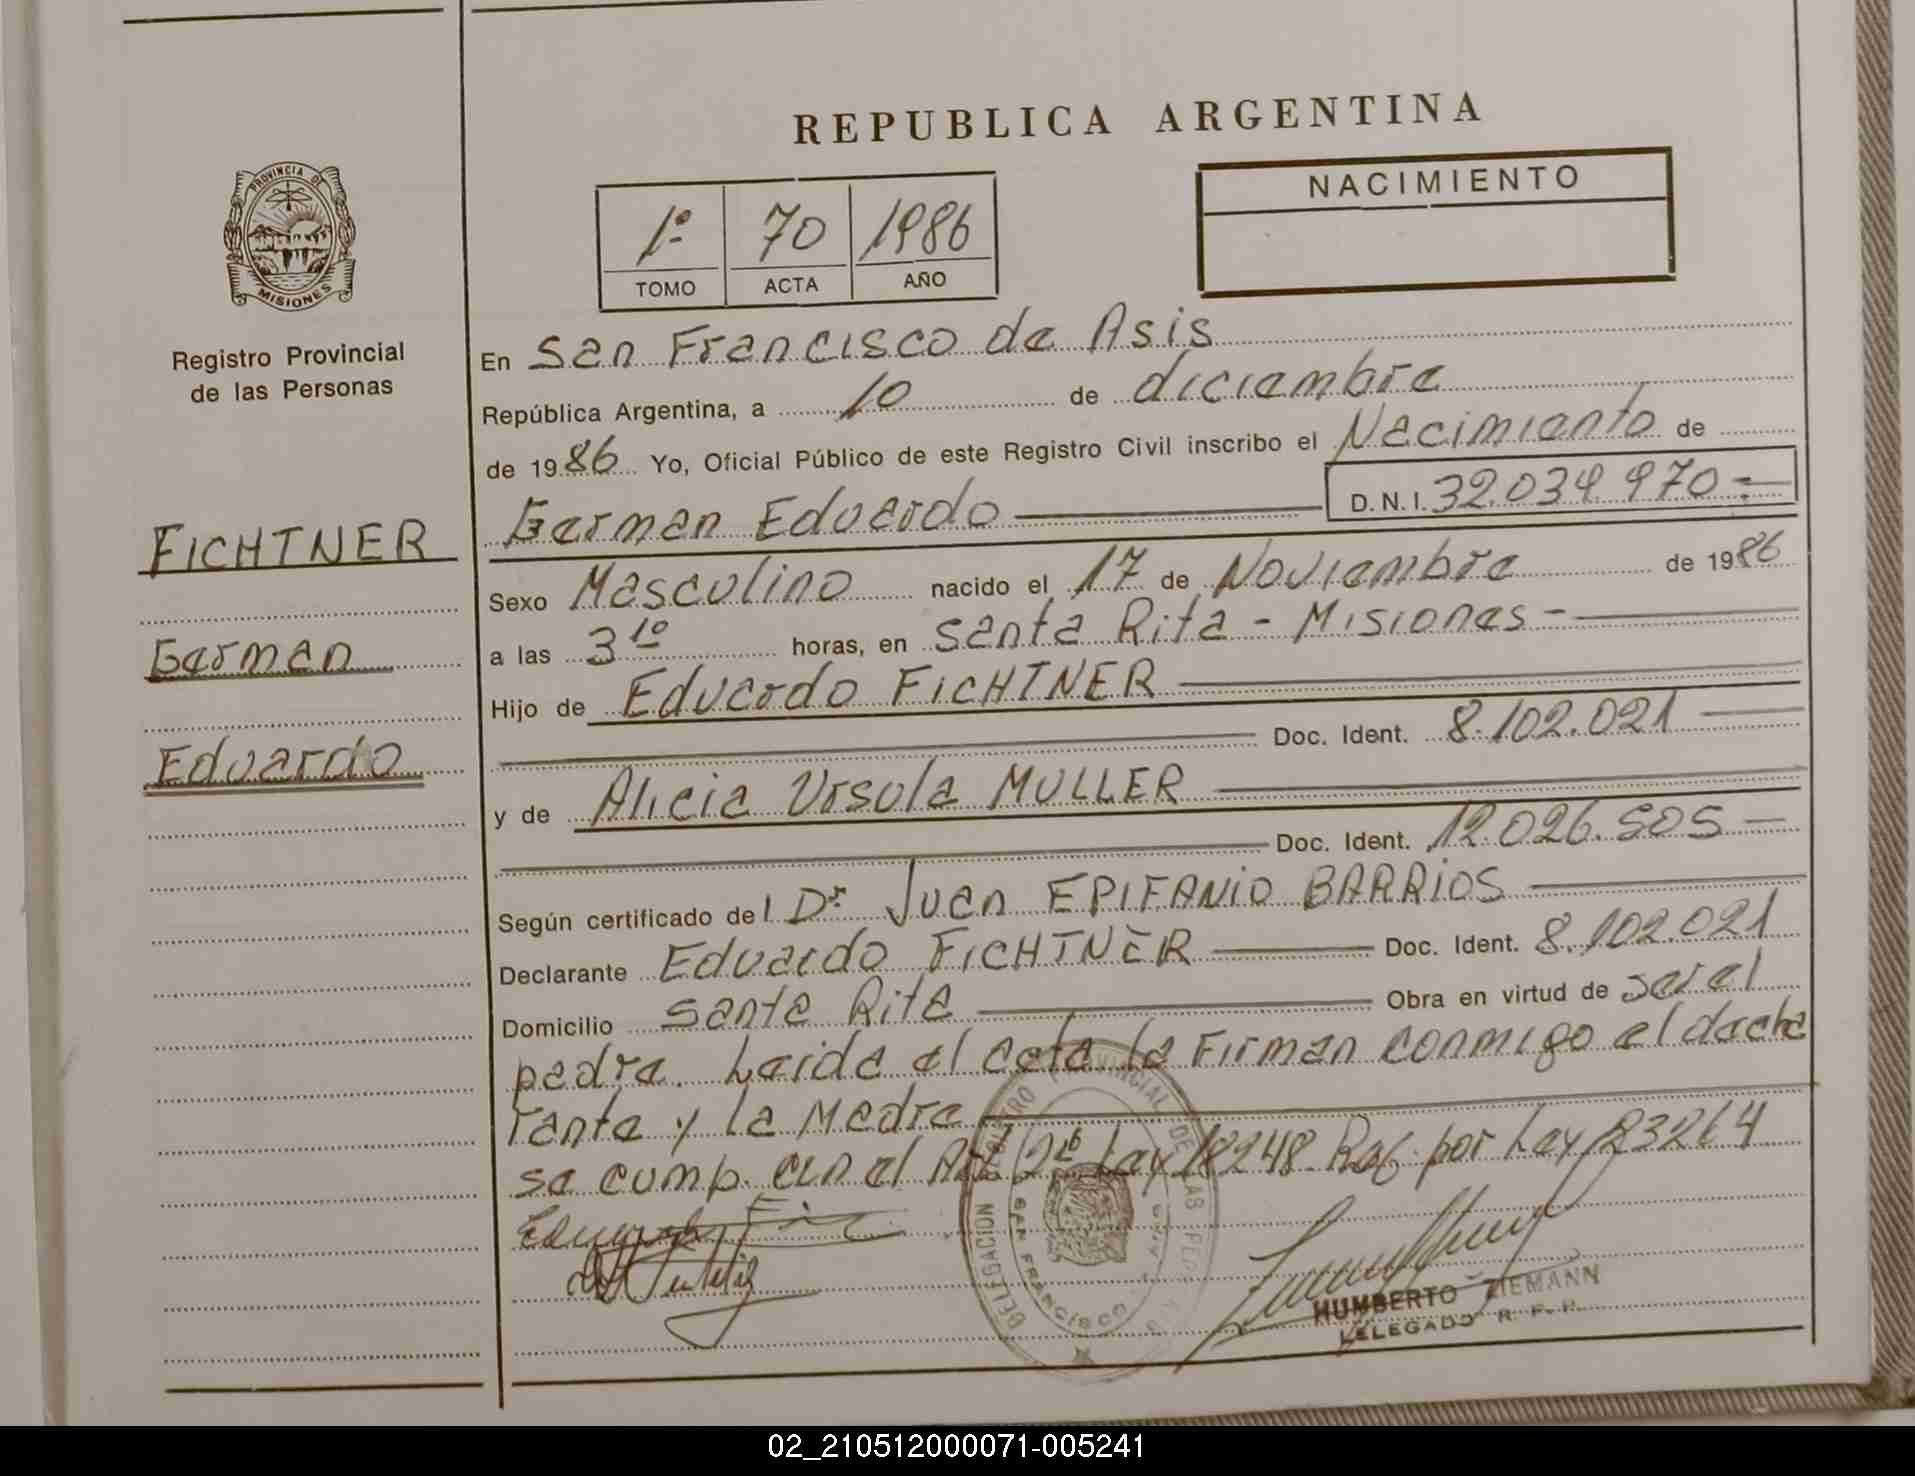 REPUBLICA ARGENTINA
PROVINCIA DE
MISIONES
Registro Provincial
de las Personas
1º 70 1986
TOMO ACTA AÑO
NACIMIENTO
En San Francisco de Asis
República Argentina, a 10 de diciembre
de 1986 Yo, Oficial Público de este Registro Civil inscribo el Nacimiento de
German Eduardo D.N.I. 32.034.970.-
FICHTNER
German
Eduardo
Sexo Masculino nacido el 17 de Noviembre de 1986
a las 3 10 horas, en Santa Rita - Misiones -
Hijo de Eduardo FICHTNER
Doc. Ident. 8.102.021
y de Alicia Ursula MULLER
Doc. Ident. 12.026.505 -
Según certificado del Dr. Juan EPIFANIO BARRIOS
Declarante Eduardo FICHTNER Doc. Ident. 8.102.021
Domicilio Santa Rita Obra en virtud de ser el
padre. Leida el acta la Firman conmigo el decla
rante y la Madre
se cump. con el Art. 2º Ley 18248 Ref. por Ley 23264
HUMBERTO ZIEMANN
DELEGADO R. P. P.
02_210512000071-005241